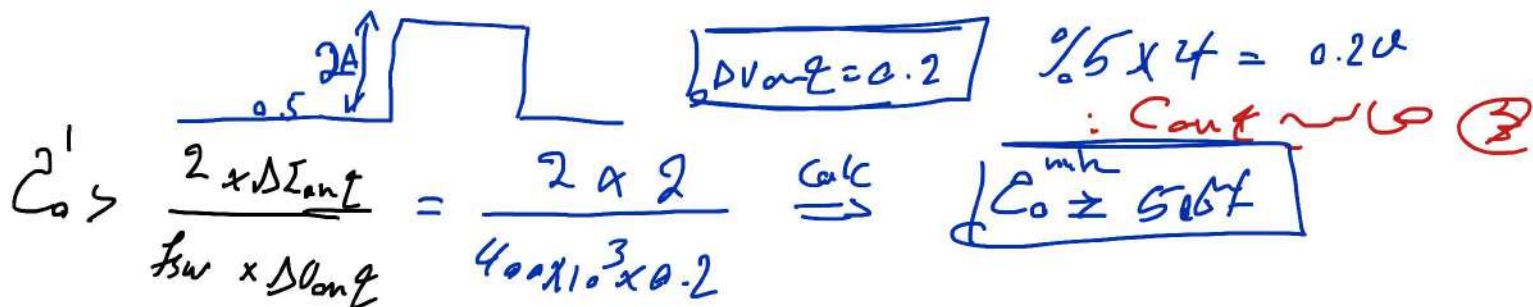 2A
0.5
ΔVout = 0.2
%5 × 4 = 0.2v
: Cout ③
C₀¹ > 2 × ΔIout / fsw × ΔVout = 2 × 2 / 400×10³×0.2 ⇒ Calc C₀ min ≥